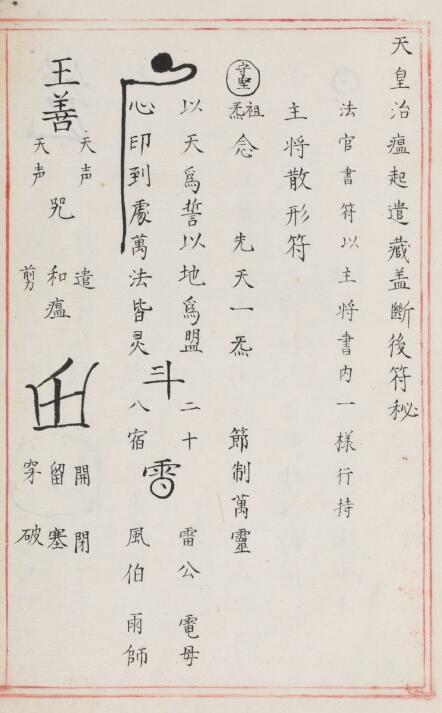 天皇治瘟起遣藏盖斷後符秘
法官書符以主將書内一樣行持
主將散形符
守堅
祖炁念 先天一炁 節制萬靈
以天爲誓以地爲盟 二十 雷公 電母
心印到處萬法皆灵 八宿 風伯 雨師
斗
王善
天声 天声
咒
遣 和瘟 剪
開 閉
留 塞
穿 破